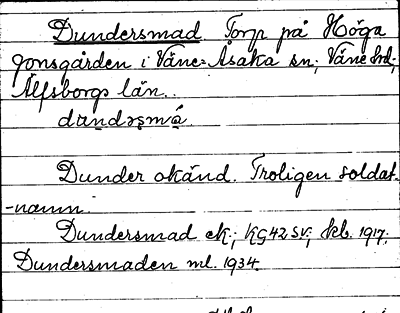 Dundersmad. Torp på Höga
Jonsgården i Väne-Åsaka sn; Väne hd;
Älfsborgs län.
dundəsmá.
Dunder okänd. Troligen soldat-
-namn.
Dundersmad ek; KG42SV; skb. 1917;
Dundersmaden ml. 1934.